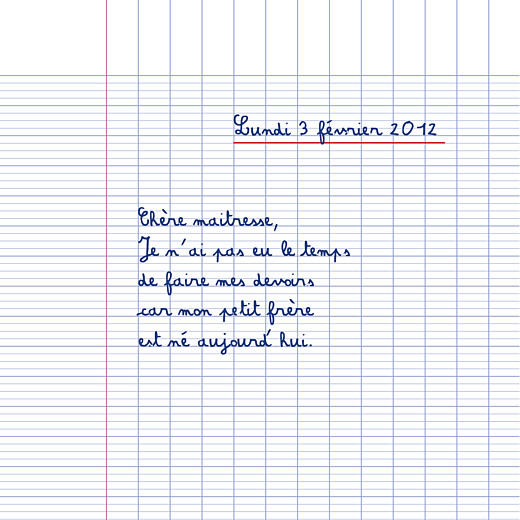 Lundi 3 février 2012
Chère maitresse,
Je n'ai pas eu le temps
de faire mes devoirs
car mon petit frère
est né aujourd'hui.